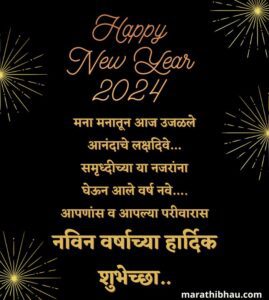 Happy
New Year
2024
मना मनातून आज उजळले
आनंदाचे लक्षदिवे...
समृध्दीच्या या नजरांना
घेऊन आले वर्ष नवे....
आपणांस व आपल्या परीवारास
नविन वर्षाच्या हार्दिक
शुभेच्छा..
marathibhau.com